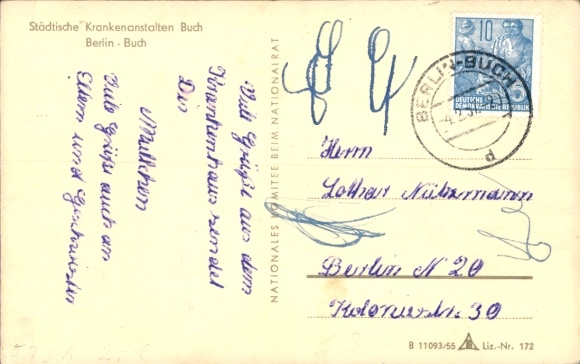 Städtische Krankenanstalten Buch
Berlin - Buch
Viele Grüße aus dem
Krankenhaus sendet
Dir
Muttchen
Viele Grüße auch an
Eltern und Geschwister
NATIONALES KOMITEE BEIM NATIONALRAT
10
DEUTSCHE
DEMOKRATISCHE REPUBLIK
BERLIN-BUCH
d
Herrn
Lothar Nübermann
Berlin N 20
Koloniestr. 30
B 11093/55
Liz.-Nr. 172